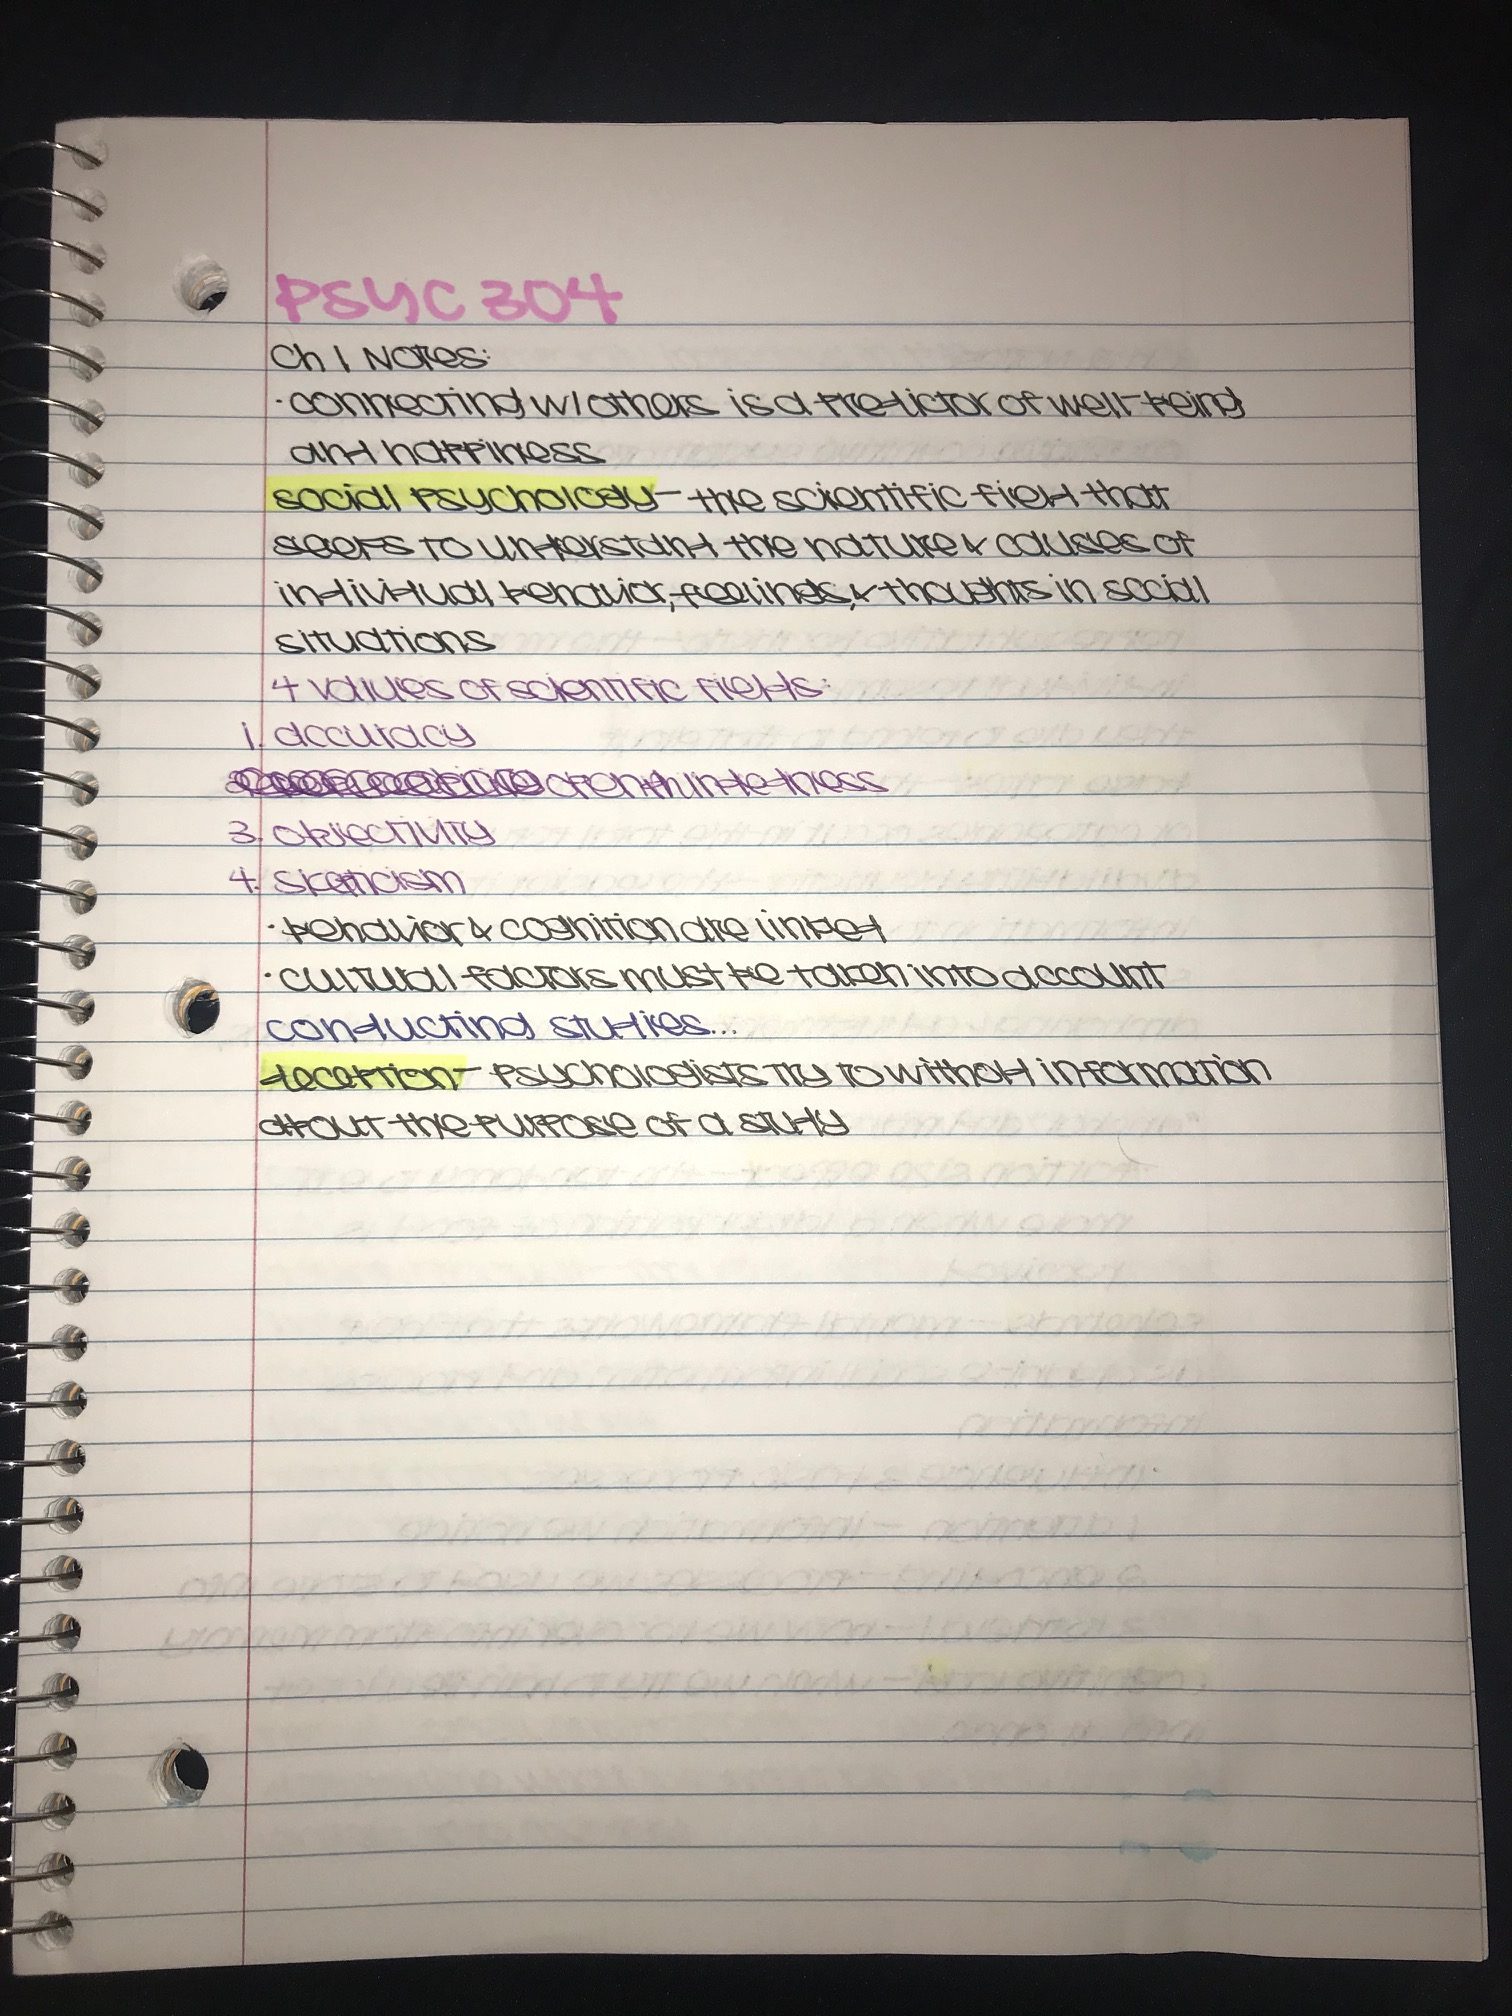 PSYC 304
Ch 1 Notes:
· connecting w/ others is a predictor of well-being
and happiness
social psychology - the scientific field that
seeks to understand the nature & causes of
individual behavior, feelings, & thoughts in social
situations
4 values of scientific fields:
1. accuracy
openmindedness
3. objectivity
4. skepticism
· behavior & cognition are linked
· cultural factors must be taken into account
conducting studies...
deception - psychologists try to withold information
about the purpose of a study